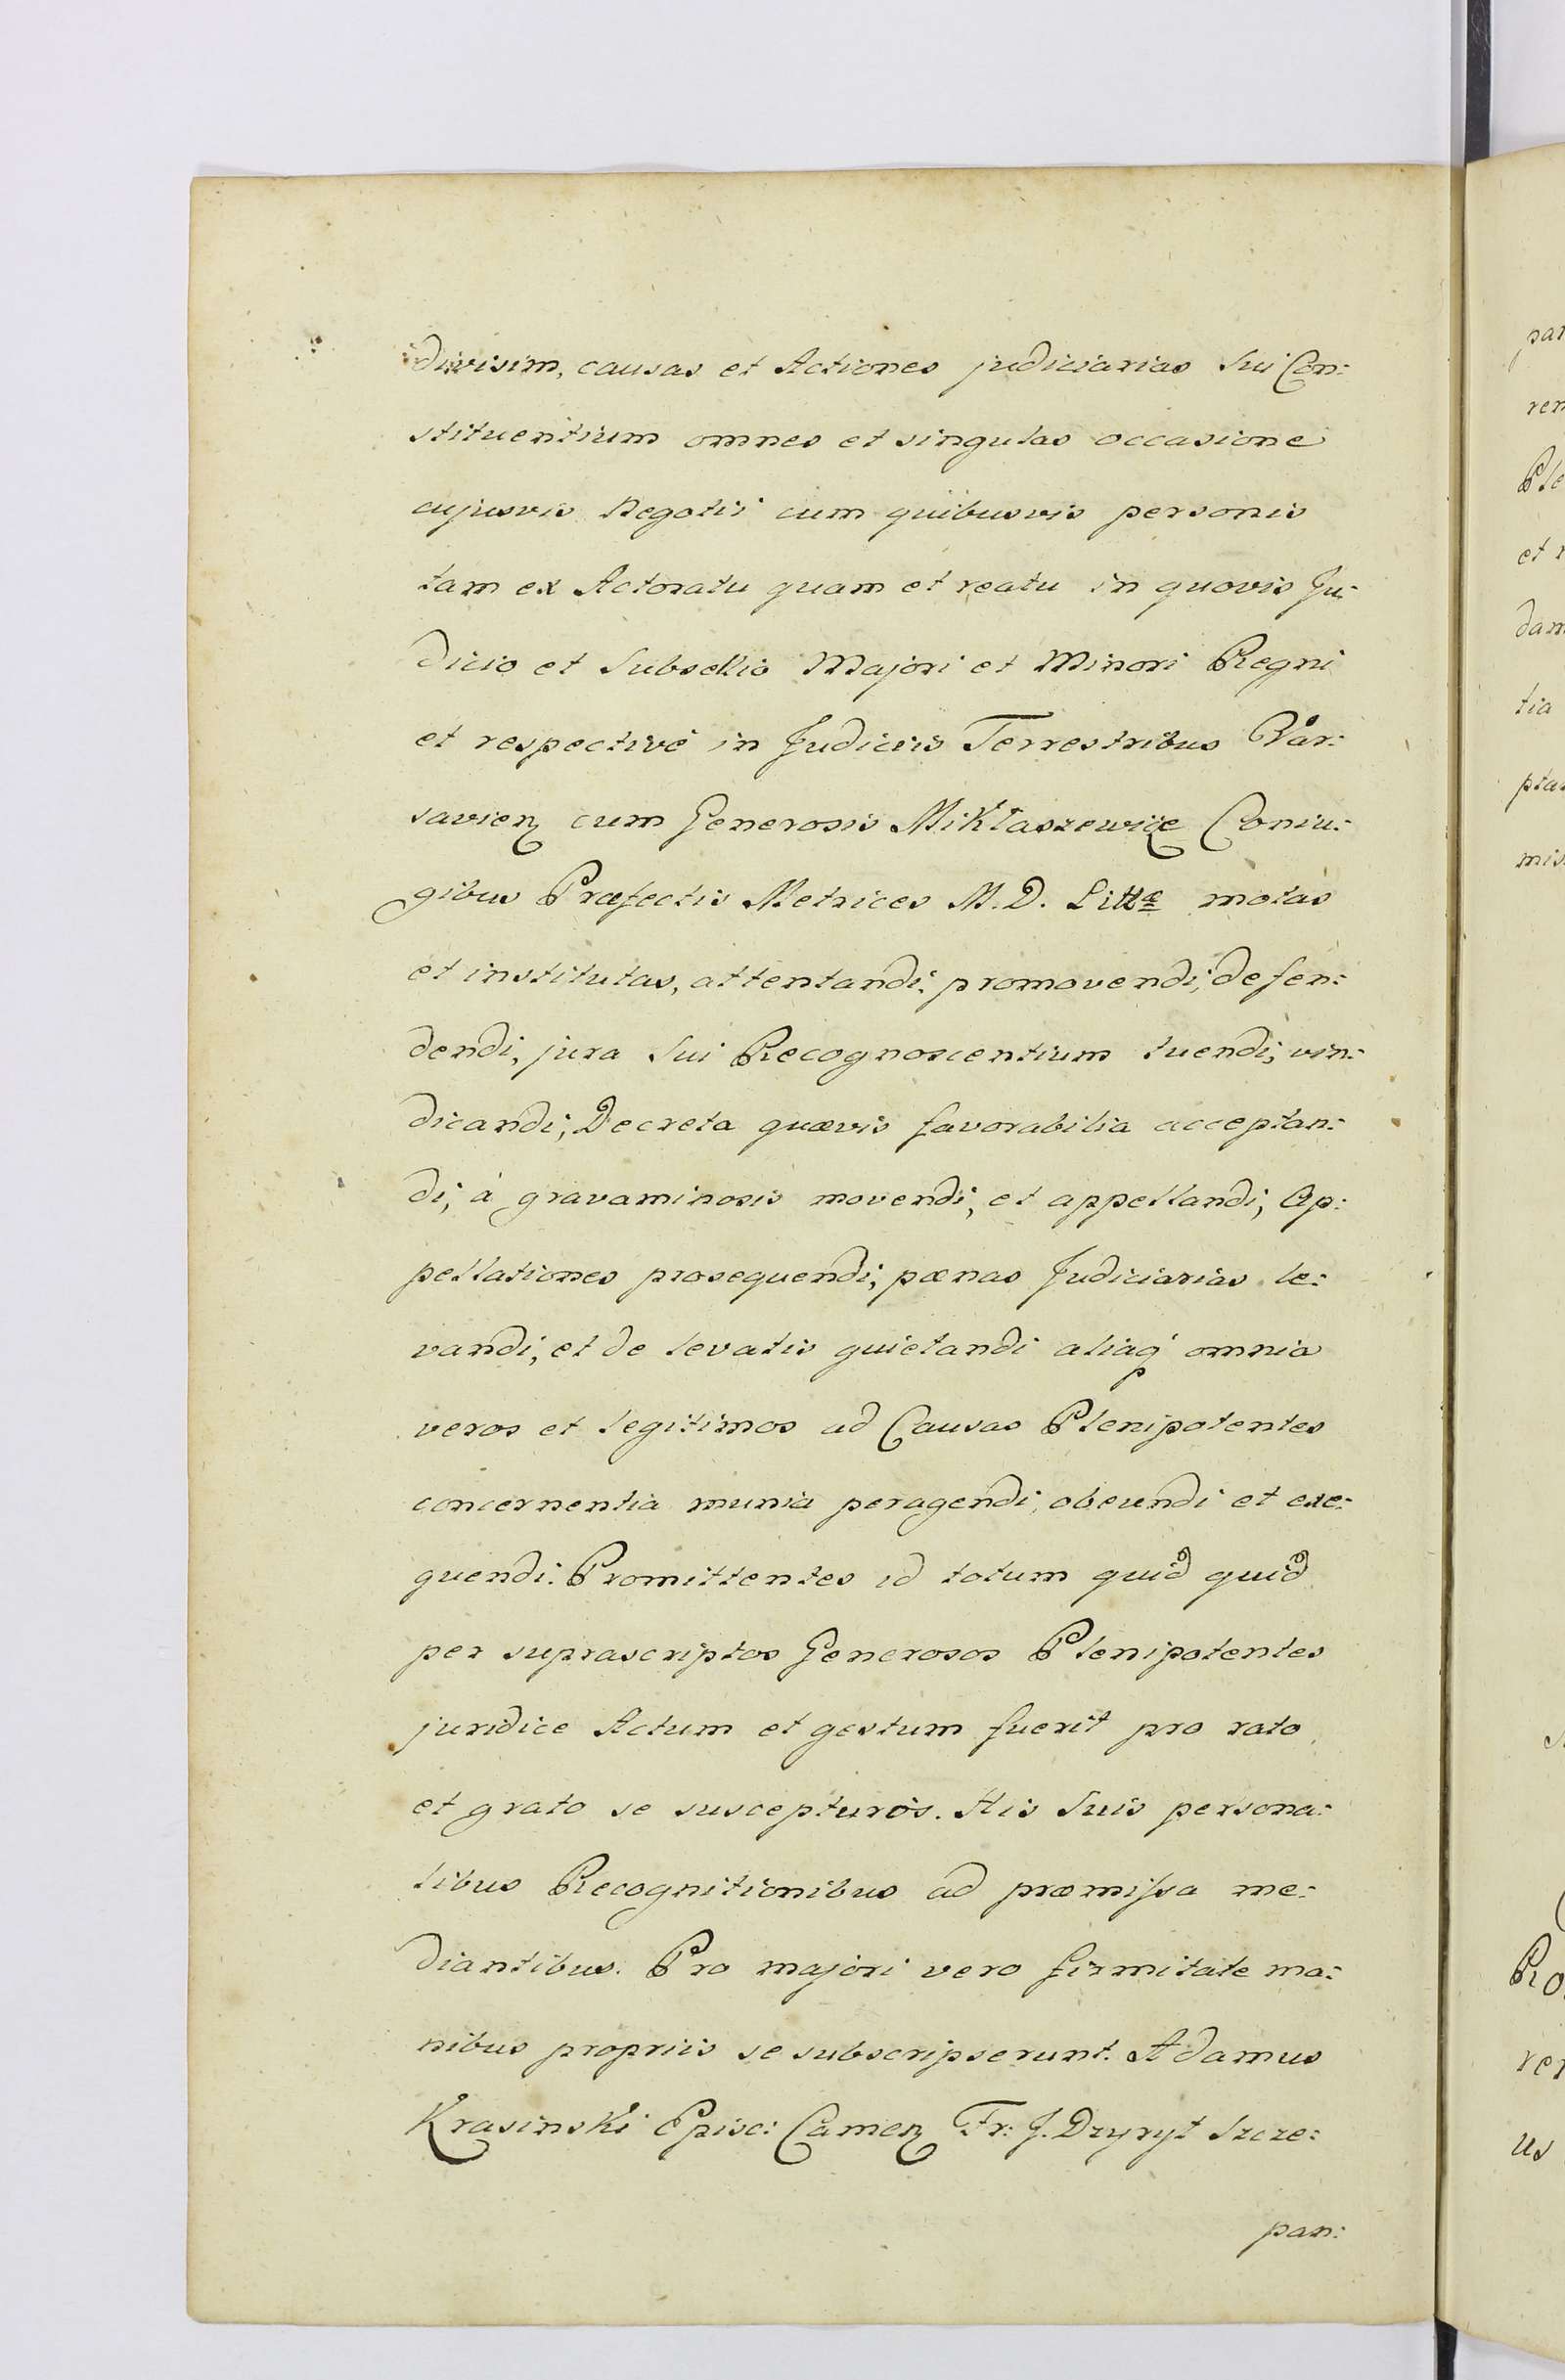 divisim, causas et Actiones judiciarias Sui Con:
stituentium omnes et singulas occasione
cujusvis Negotii cum quibusvis personis
tam ex Actoratu quam et reatu in quovis Ju:
dicio et Subsellio Majori et Minori Regni
et respectivè in Judiciis Terrestribus Var:
savien cum Generosis Mikłaszewicze Coniu:
gibus Præfectis Metrices M. D. Littæ motas
et institutas, attentandi, promovendi, defen:
dendi, jura Sui Recognoscentium tuendi, vin:
dicandi, Decreta quævis favorabilia acceptan:
di, à gravaminosis movendi, et appellandi, Ap:
pellationes prosequendi, pœnas Judiciarias le:
vandi, et de levatis quietandi aliaq omnia
veros et legitimos ad Causas Plenipotentes
concernentia munia peragendi, obeundi et exe:
quendi. Promittentes id totum quid quid
per suprascriptos Generosos Plenipotentes
juridice Actum et gestum fuerit pro rato
et grato se suscepturos. His Suis persona:
libus Recognitionibus ad præmissa me:
diantibus. Pro majori vero firmitate ma:
nibus propriis se subscripserunt. Adamus
Krasinski Episc: Camen Fr: J. Dzyryt Szcze:
pan:
par
ren
Ple
et r
dam
tia
ptas
mis
Ro
ver
us